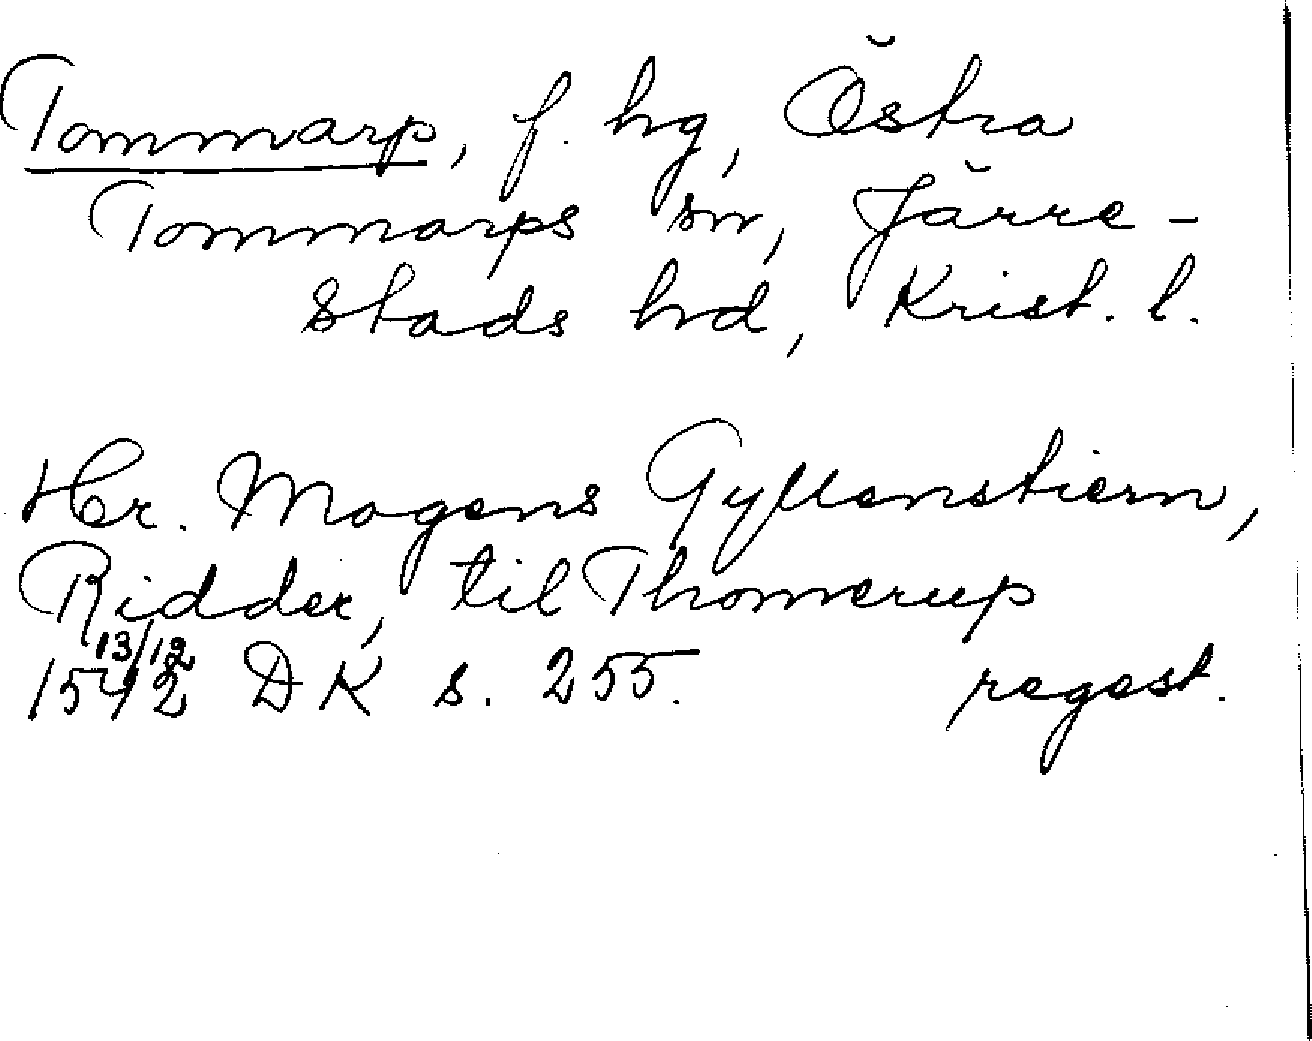 Tommarp, f. hg, Östra
Tommarps sn, Järre-
stads hd, Krist. l.
Hr. Mogens Gyllenstiern,
Ridder, til Thomerup
13/12
1542 DK s. 255. regest.